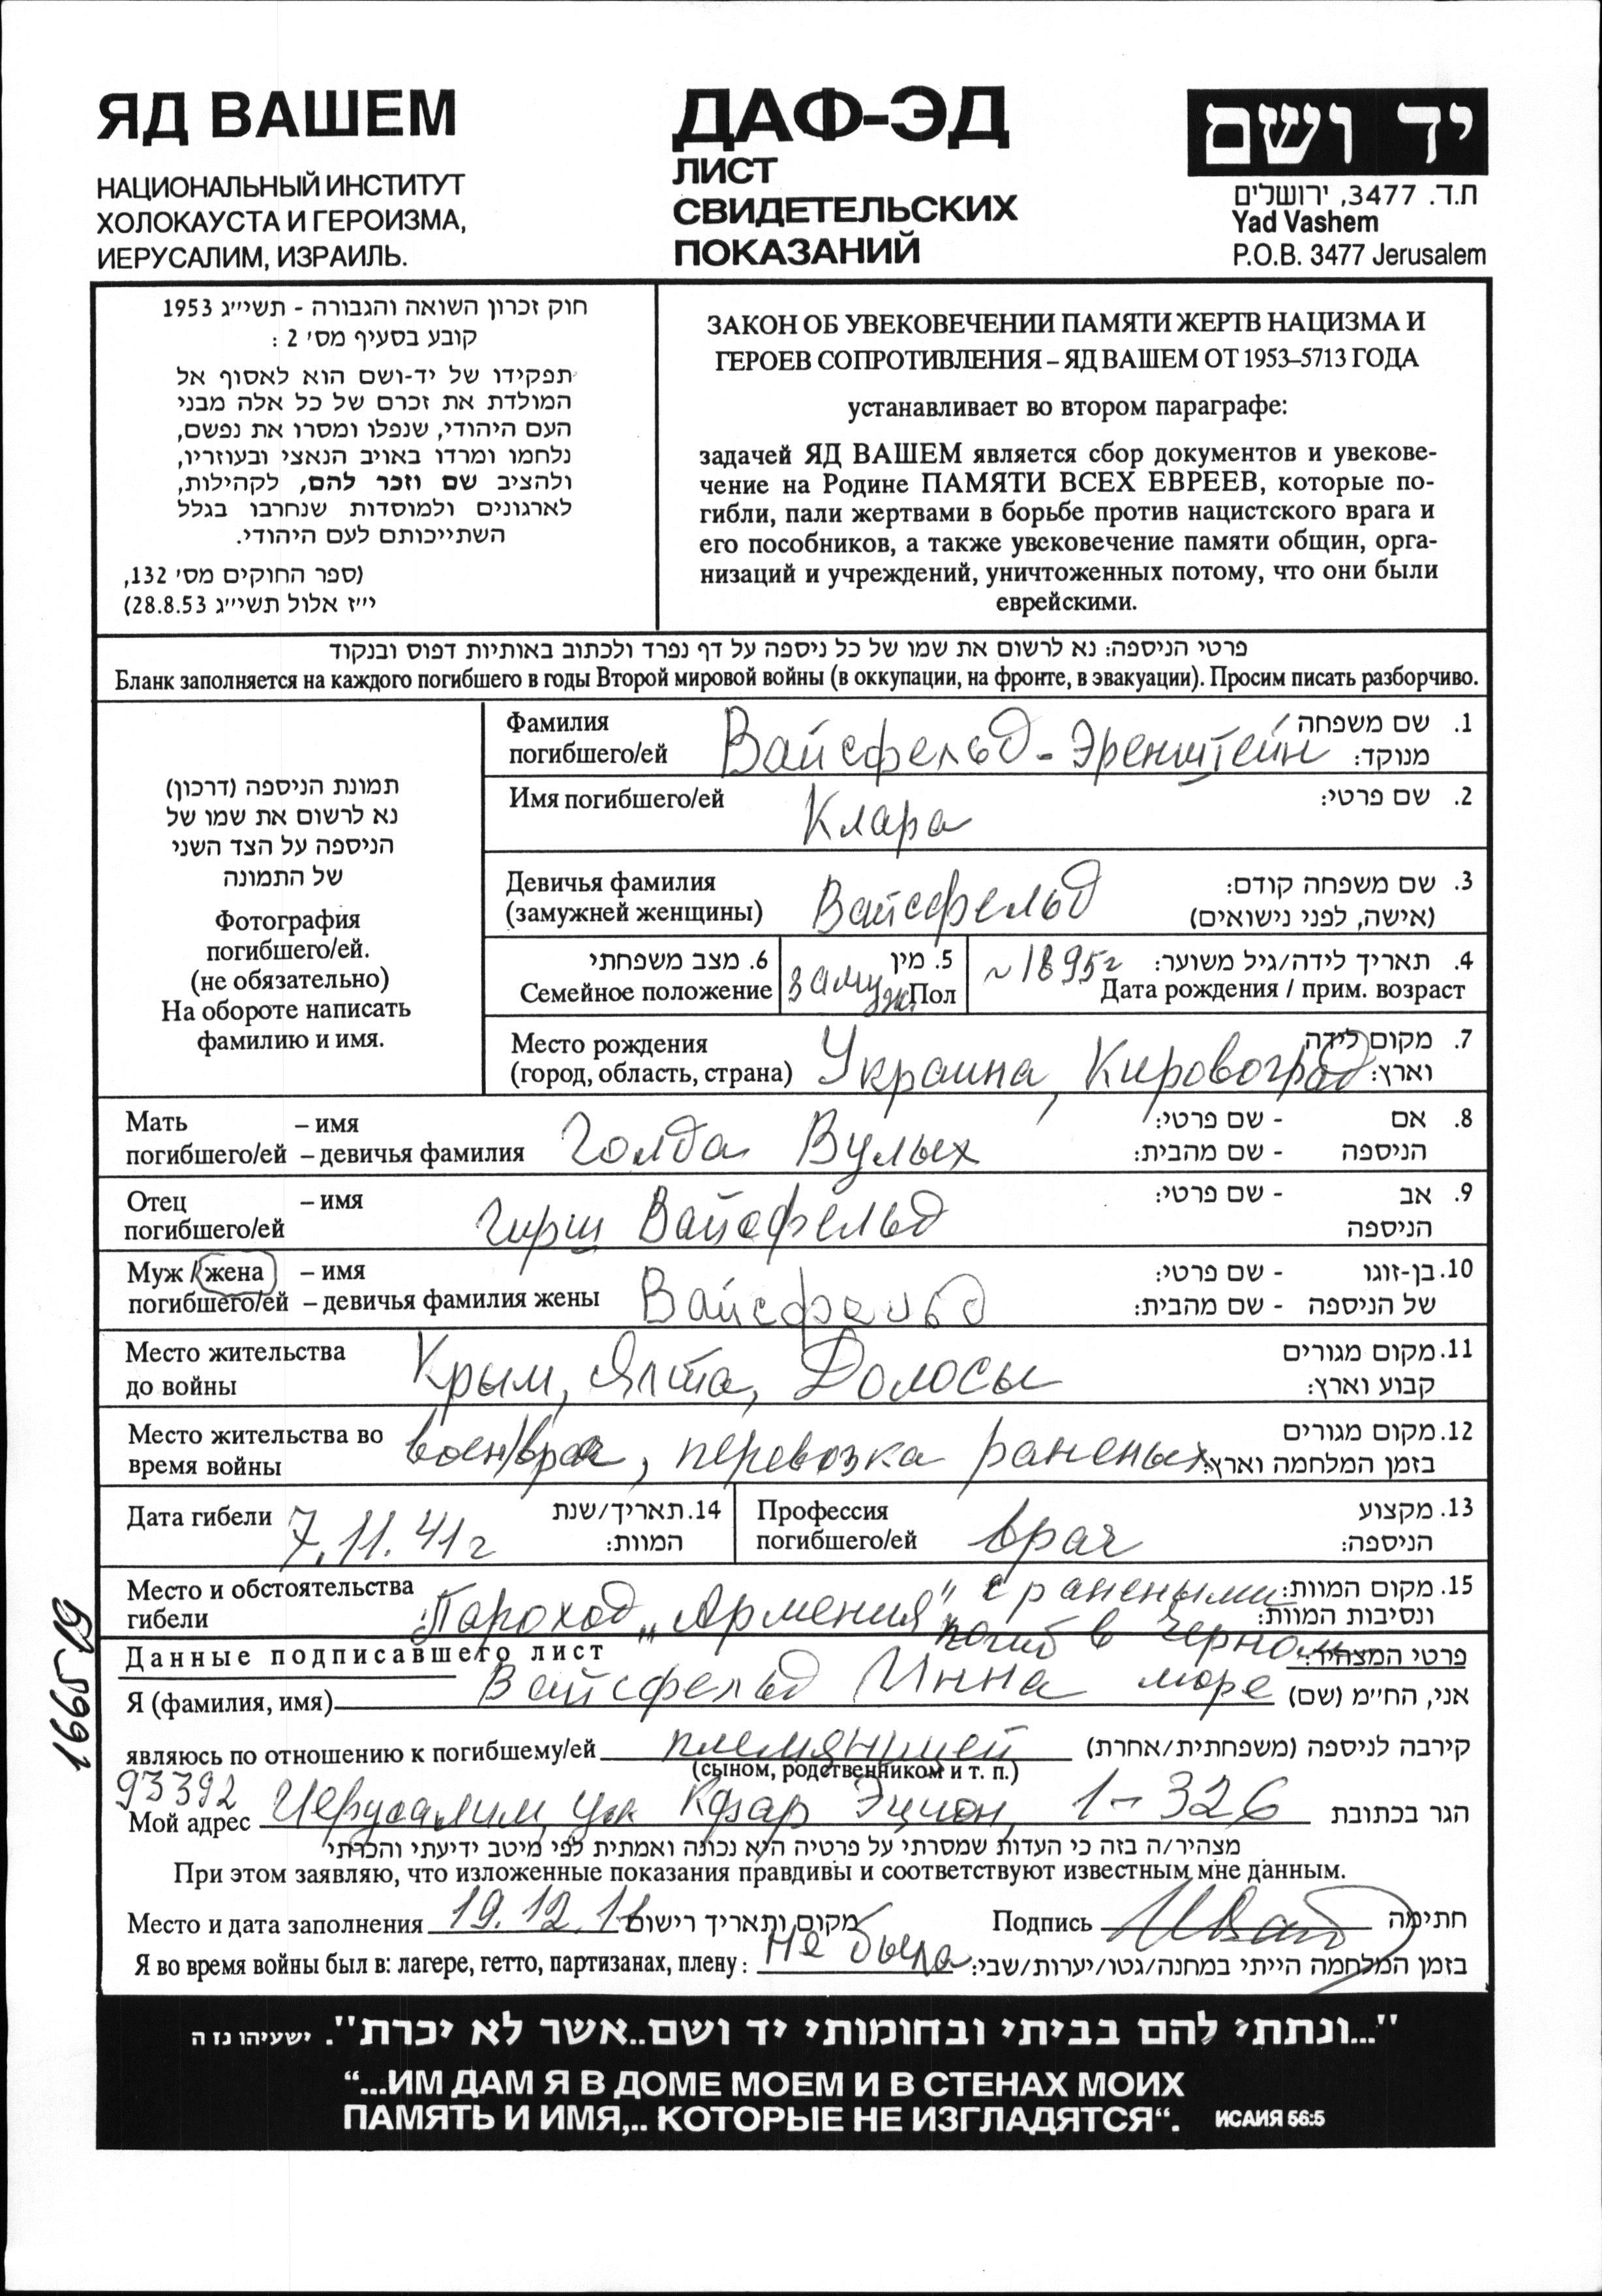 ЯД ВАШЕМ
НАЦИОНАЛЬНЫЙ ИНСТИТУТ
ХОЛОКАУСТА И ГЕРОИЗМА,
ИЕРУСАЛИМ, ИЗРАИЛЬ.
ДАФ-ЭД
ЛИСТ
СВИДЕТЕЛЬСКИХ
ПОКАЗАНИЙ
יד ושם
ת.ד. 3477, ירושלים
Yad Vashem
P.O.B. 3477 Jerusalem
חוק זכרון השואה והגבורה - תשי״ג 1953
קובע בסעיף מס׳ 2 :
תפקידו של יד-ושם הוא לאסוף אל
המולדת את זכרם של כל אלה מבני
העם היהודי, שנפלו ומסרו את נפשם,
נלחמו ומרדו באויב הנאצי ובעוזריו,
ולהציב שם וזכר להם, לקהילות,
לארגונים ולמוסדות שנחרבו בגלל
השתייכותם לעם היהודי.
(ספר החוקים מס׳ 132,
י״ז אלול תשי״ג 28.8.53)
ЗАКОН ОБ УВЕКОВЕЧЕНИИ ПАМЯТИ ЖЕРТВ НАЦИЗМА И
ГЕРОЕВ СОПРОТИВЛЕНИЯ – ЯД ВАШЕМ ОТ 1953–5713 ГОДА
устанавливает во втором параграфе:
задачей ЯД ВАШЕМ является сбор документов и увекове-
чение на Родине ПАМЯТИ ВСЕХ ЕВРЕЕВ, которые по-
гибли, пали жертвами в борьбе против нацистского врага и
его пособников, а также увековечение памяти общин, орга-
низаций и учреждений, уничтоженных потому, что они были
еврейскими.
פרטי הניספה: נא לרשום את שמו של כל ניספה על דף נפרד ולכתוב באותיות דפוס ובנקוד
Бланк заполняется на каждого погибшего в годы Второй мировой войны (в оккупации, на фронте, в эвакуации). Просим писать разборчиво.
תמונת הניספה (דרכון)
נא לרשום את שמו של
הניספה על הצד השני
של התמונה
Фотография
погибшего/ей.
(не обязательно)
На обороте написать
фамилию и имя.
Фамилия погибшего/ей Вайсфельд - Эренштейн 1. שם משפחה מנוקד:
Имя погибшего/ей Клара 2. שם פרטי:
Девичья фамилия (замужней женщины) Вайсфельд 3. שם משפחה קודם: (אישה, לפני נישואים)
6. מצב משפחתי Семейное положение замуж 5. מין Пол ~1895г 4. תאריך לידה/גיל משוער: Дата рождения / прим. возраст
Место рождения (город, область, страна) Украина, Кировоград 7. מקום לידה וארץ:
Мать погибшего/ей – имя – девичья фамилия Голда Вулых 8. אם הניספה - שם פרטי: - שם מהבית:
Отец погибшего/ей – имя Гирш Вайсфельд 9. אב הניספה - שם פרטי:
Муж / жена погибшего/ей – имя – девичья фамилия жены Вайсфельд 10. בן-זוגו של הניספה - שם פרטי: - שם מהבית:
Место жительства до войны Крым, Ялта, Долосы 11. מקום מגורים קבוע וארץ:
Место жительства во время войны воен/врач, перевозка раненых 12. מקום מגורים בזמן המלחמה וארץ:
Дата гибели 7.11.41г 14. תאריך/שנת המוות: Профессия погибшего/ей врач 13. מקצוע הניספה:
Место и обстоятельства гибели Пароход „Армения" с ранеными 15. מקום המוות: ונסיבות המוות:
погиб в Черном
море
Данные подписавшего лист פרטי המצהיר:
Я (фамилия, имя) Вайсфельд Инна אני, החי״מ (שם)
являюсь по отношению к погибшему/ей племянницей קירבה לניספה (משפחתית/אחרת)
(сыном, родственником и т. п.)
93392
Мой адрес Иерусалим, ул Кфар Эцион, 1-326 הגר בכתובת
מצהיר/ה בזה כי העדות שמסרתי על פרטיה היא נכונה ואמתית לפי מיטב ידיעתי והכרתי
При этом заявляю, что изложенные показания правдивы и соответствуют известным мне данным.
Место и дата заполнения 19.12.11 מקום ותאריך רישום Подпись חתימה
Я во время войны был в: лагере, гетто, партизанах, плену: не была בזמן המלחמה הייתי במחנה/גטו/יערות/שבי:
"...ונתתי להם בביתי ובחומותי יד ושם..אשר לא יכרת". ישעיהו נז ה
“...ИМ ДАМ Я В ДОМЕ МОЕМ И В СТЕНАХ МОИХ
ПАМЯТЬ И ИМЯ,.. КОТОРЫЕ НЕ ИЗГЛАДЯТСЯ“. ИСАИЯ 56:5